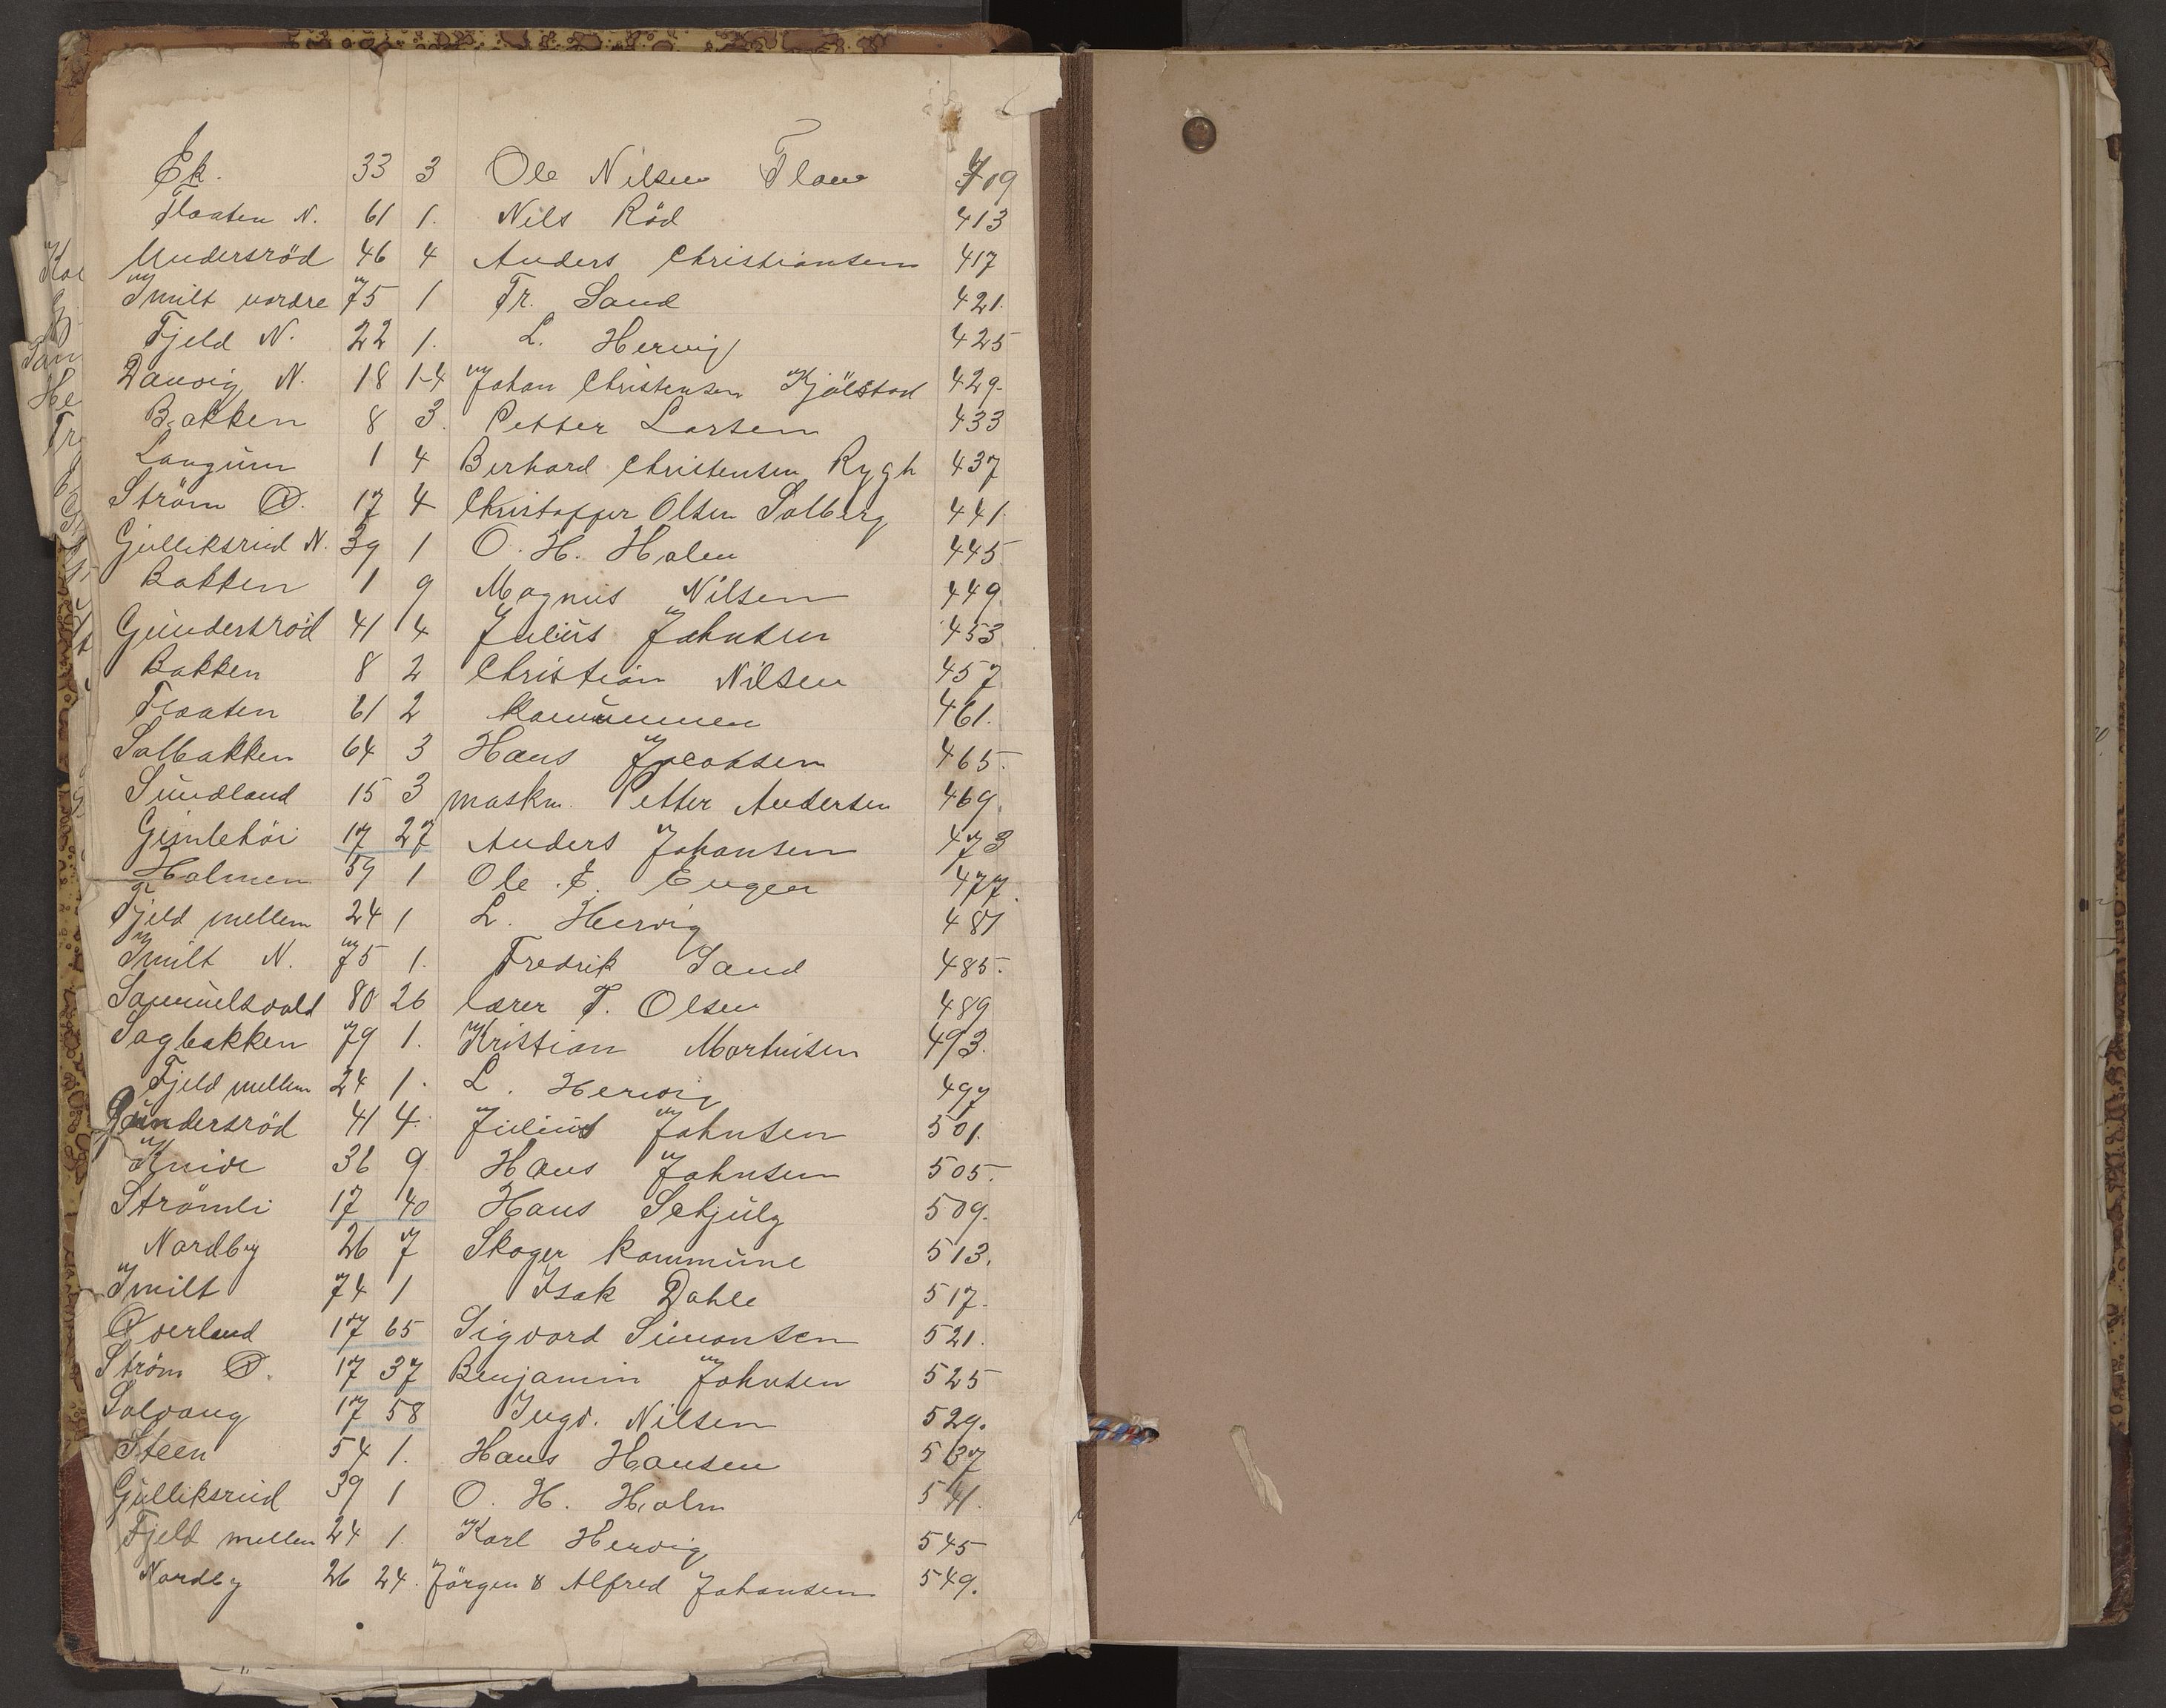 Ek. 33 3 Ole Nilsen Flaur 409
Flaaten N. 61 1. Nils Röd 413
Undersröd 46 4 Anders Christiansen 417
Smilt nordre 75 1 Fr. Sand 421.
Fjeld N. 22 1. L. Hervig 425
Danvig N. 18 1-4 Johan Christensen Kjölstad 429.
Bakken 8 3. Petter Larsen 433
Langum 1 4 Berhard Christensen Rygh 437
Ström Ø. 17 4 Christoffer Olsen Solberg 441
Gulliksrud N. 39 1 O. H. Holm 445
Bakken 1 9 Magnus Nilsen 449
Gundersröd 41 4 Julius Johnsen 453
Bakken 8 2 Christian Nilsen 457
Flaaten 61 2 461.
Solbakken 64 3 Hans Jacobsen 465.
Sundland 15 3 maskm. Petter Andersen 469.
Gimlehöi 17 27 Anders Johansen 473
Holmen 59 1 Ole E. Enger 477.
Fjeld mellem 24 1 L. Hervig 481
Smilt N. 75 1. Fredrik Sand 485.
Samuelsvold 80 26 lærer T. Olsen 489
Sagbakken 79 1. Kristian Martinsen 493.
Fjeld mellem 24 1. L. Hervig 497
Gundersröd 41 4. Julius Johnsen 501.
Knive 36 9 Hans Johnsen 505.
Strömli 17 40 Hans Schjulz 509.
Nordby 26 7 Skoger kommune 513.
Smilt 74 1 Isak Dahle 517.
Øverland 17 65 Sigvard Simonsen 521.
Ström Ø. 17 37 Benjamin Johnsen 525
Solvang 17 58 Ingv. Nilsen 529.
Steen 54 1. Hans Hansen 537
Gulliksrud 39 1 O. H. Holm 541.
Fjeld mellem 24 1. Karl Hervig 545
Nordby 26 24. Jörgen & Alfred Johansen 549.